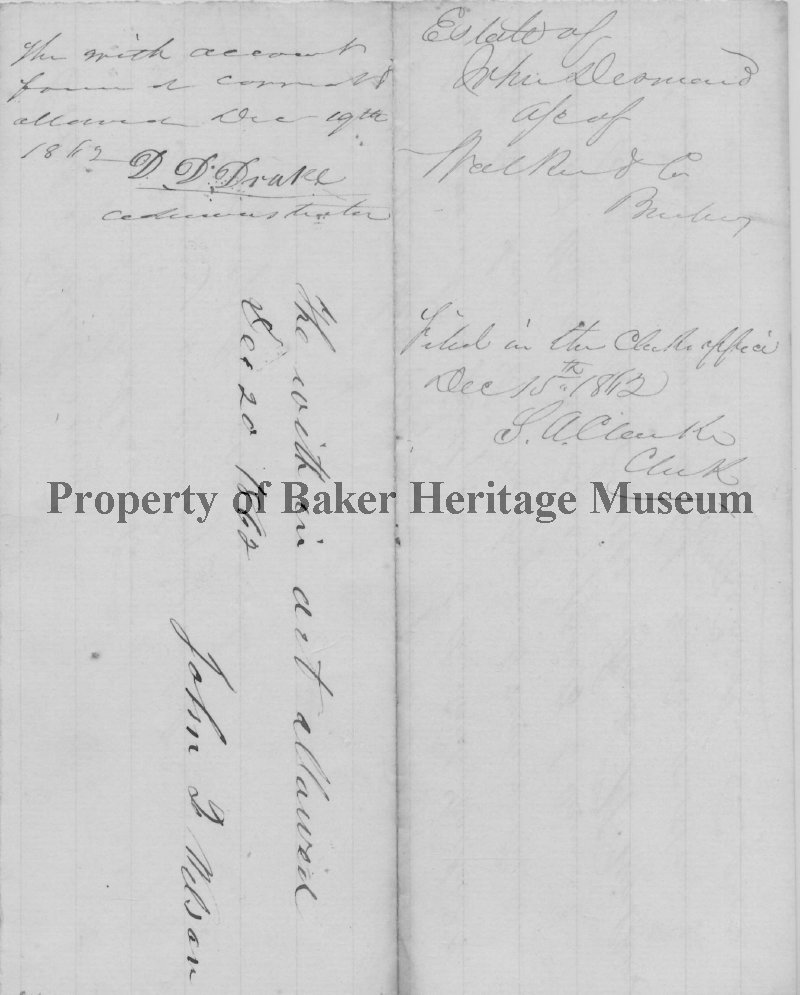 The with account
found correct &
allowed Dec 19th
1862
D. D. Drake
administrator
The with in act allawed
Dec 20 1862
John Q Wilson
Estate of
John Desmond
a/c of
Walker & Co
Filed in the Clerks office
Dec 15th 1862
S. A. Clarke
Clerk
Property of Baker Heritage Museum